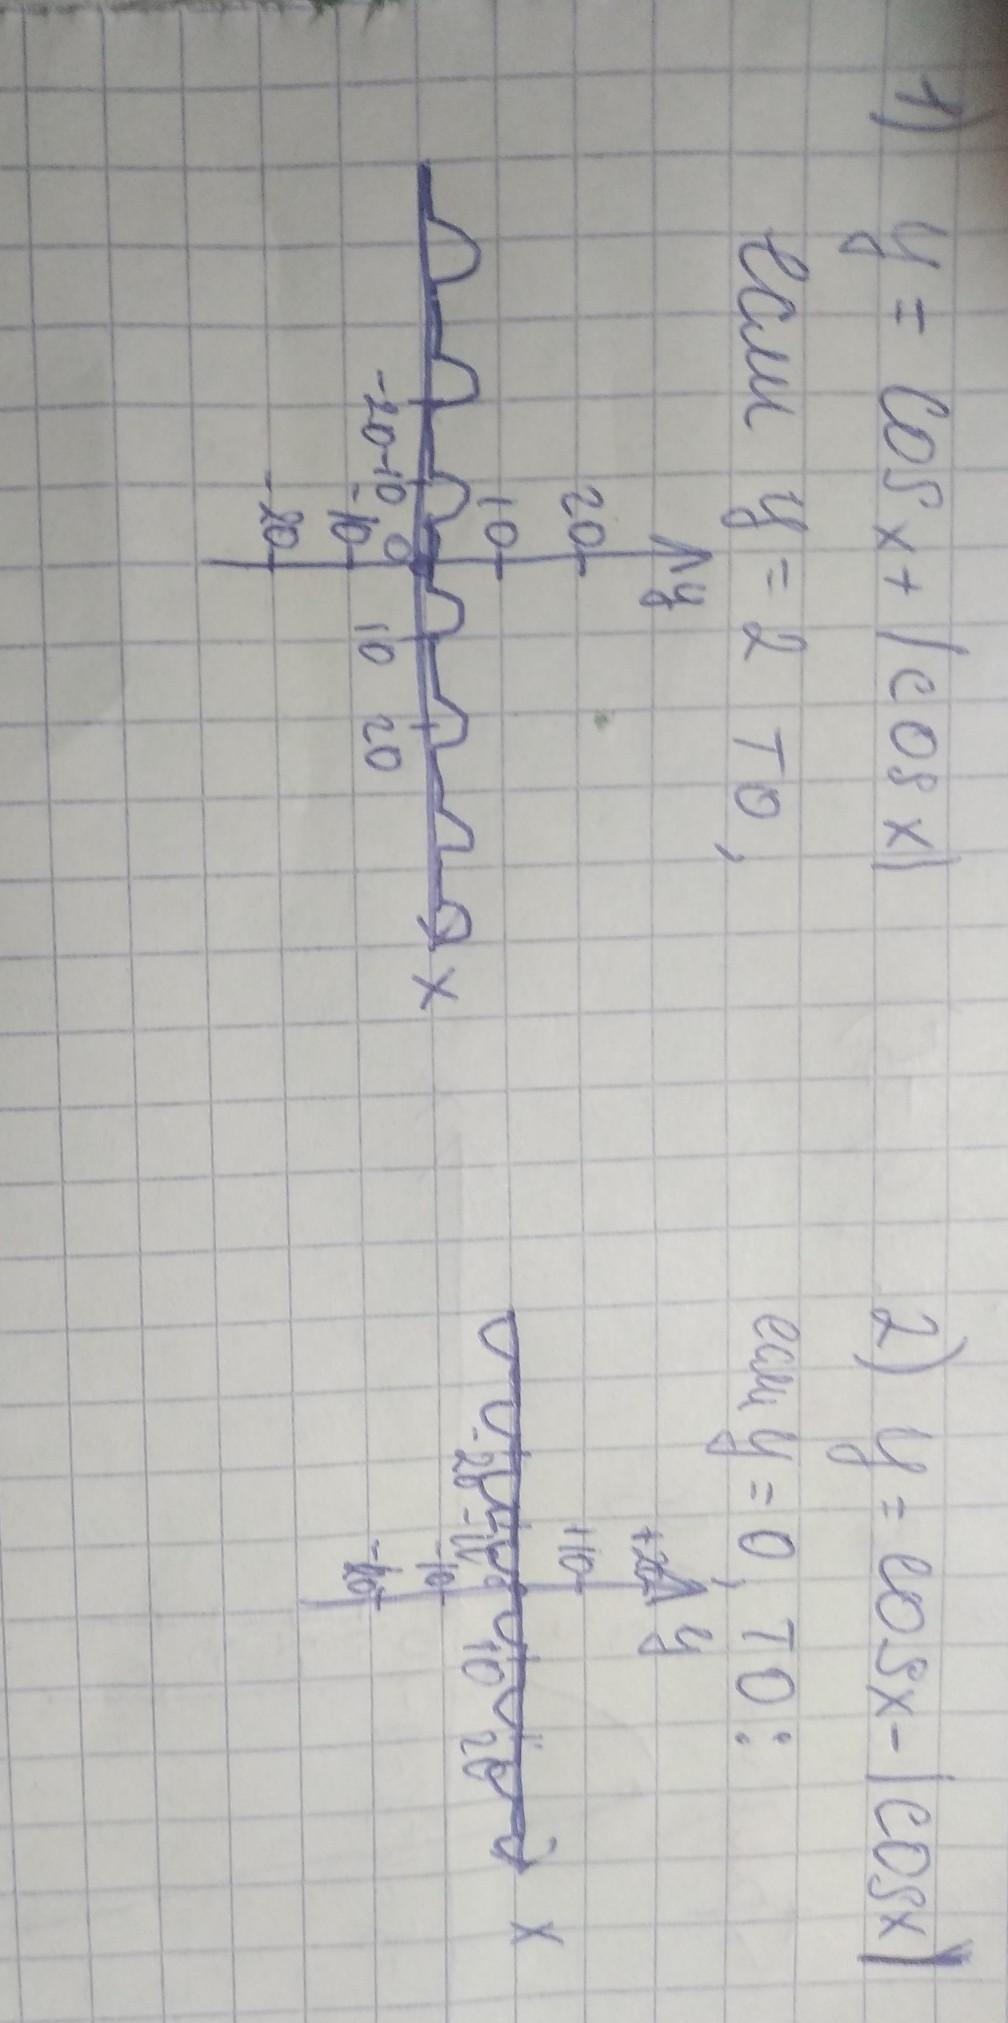 1) y = cos x + |cos x|
если y = 2 то,
y
20
10
0
-10
-20
-20 -10
10 20
x
2) y = cos x - |cos x|
если y = 0, то:
y
+20
+10
-10
-20 -10
10 20
x